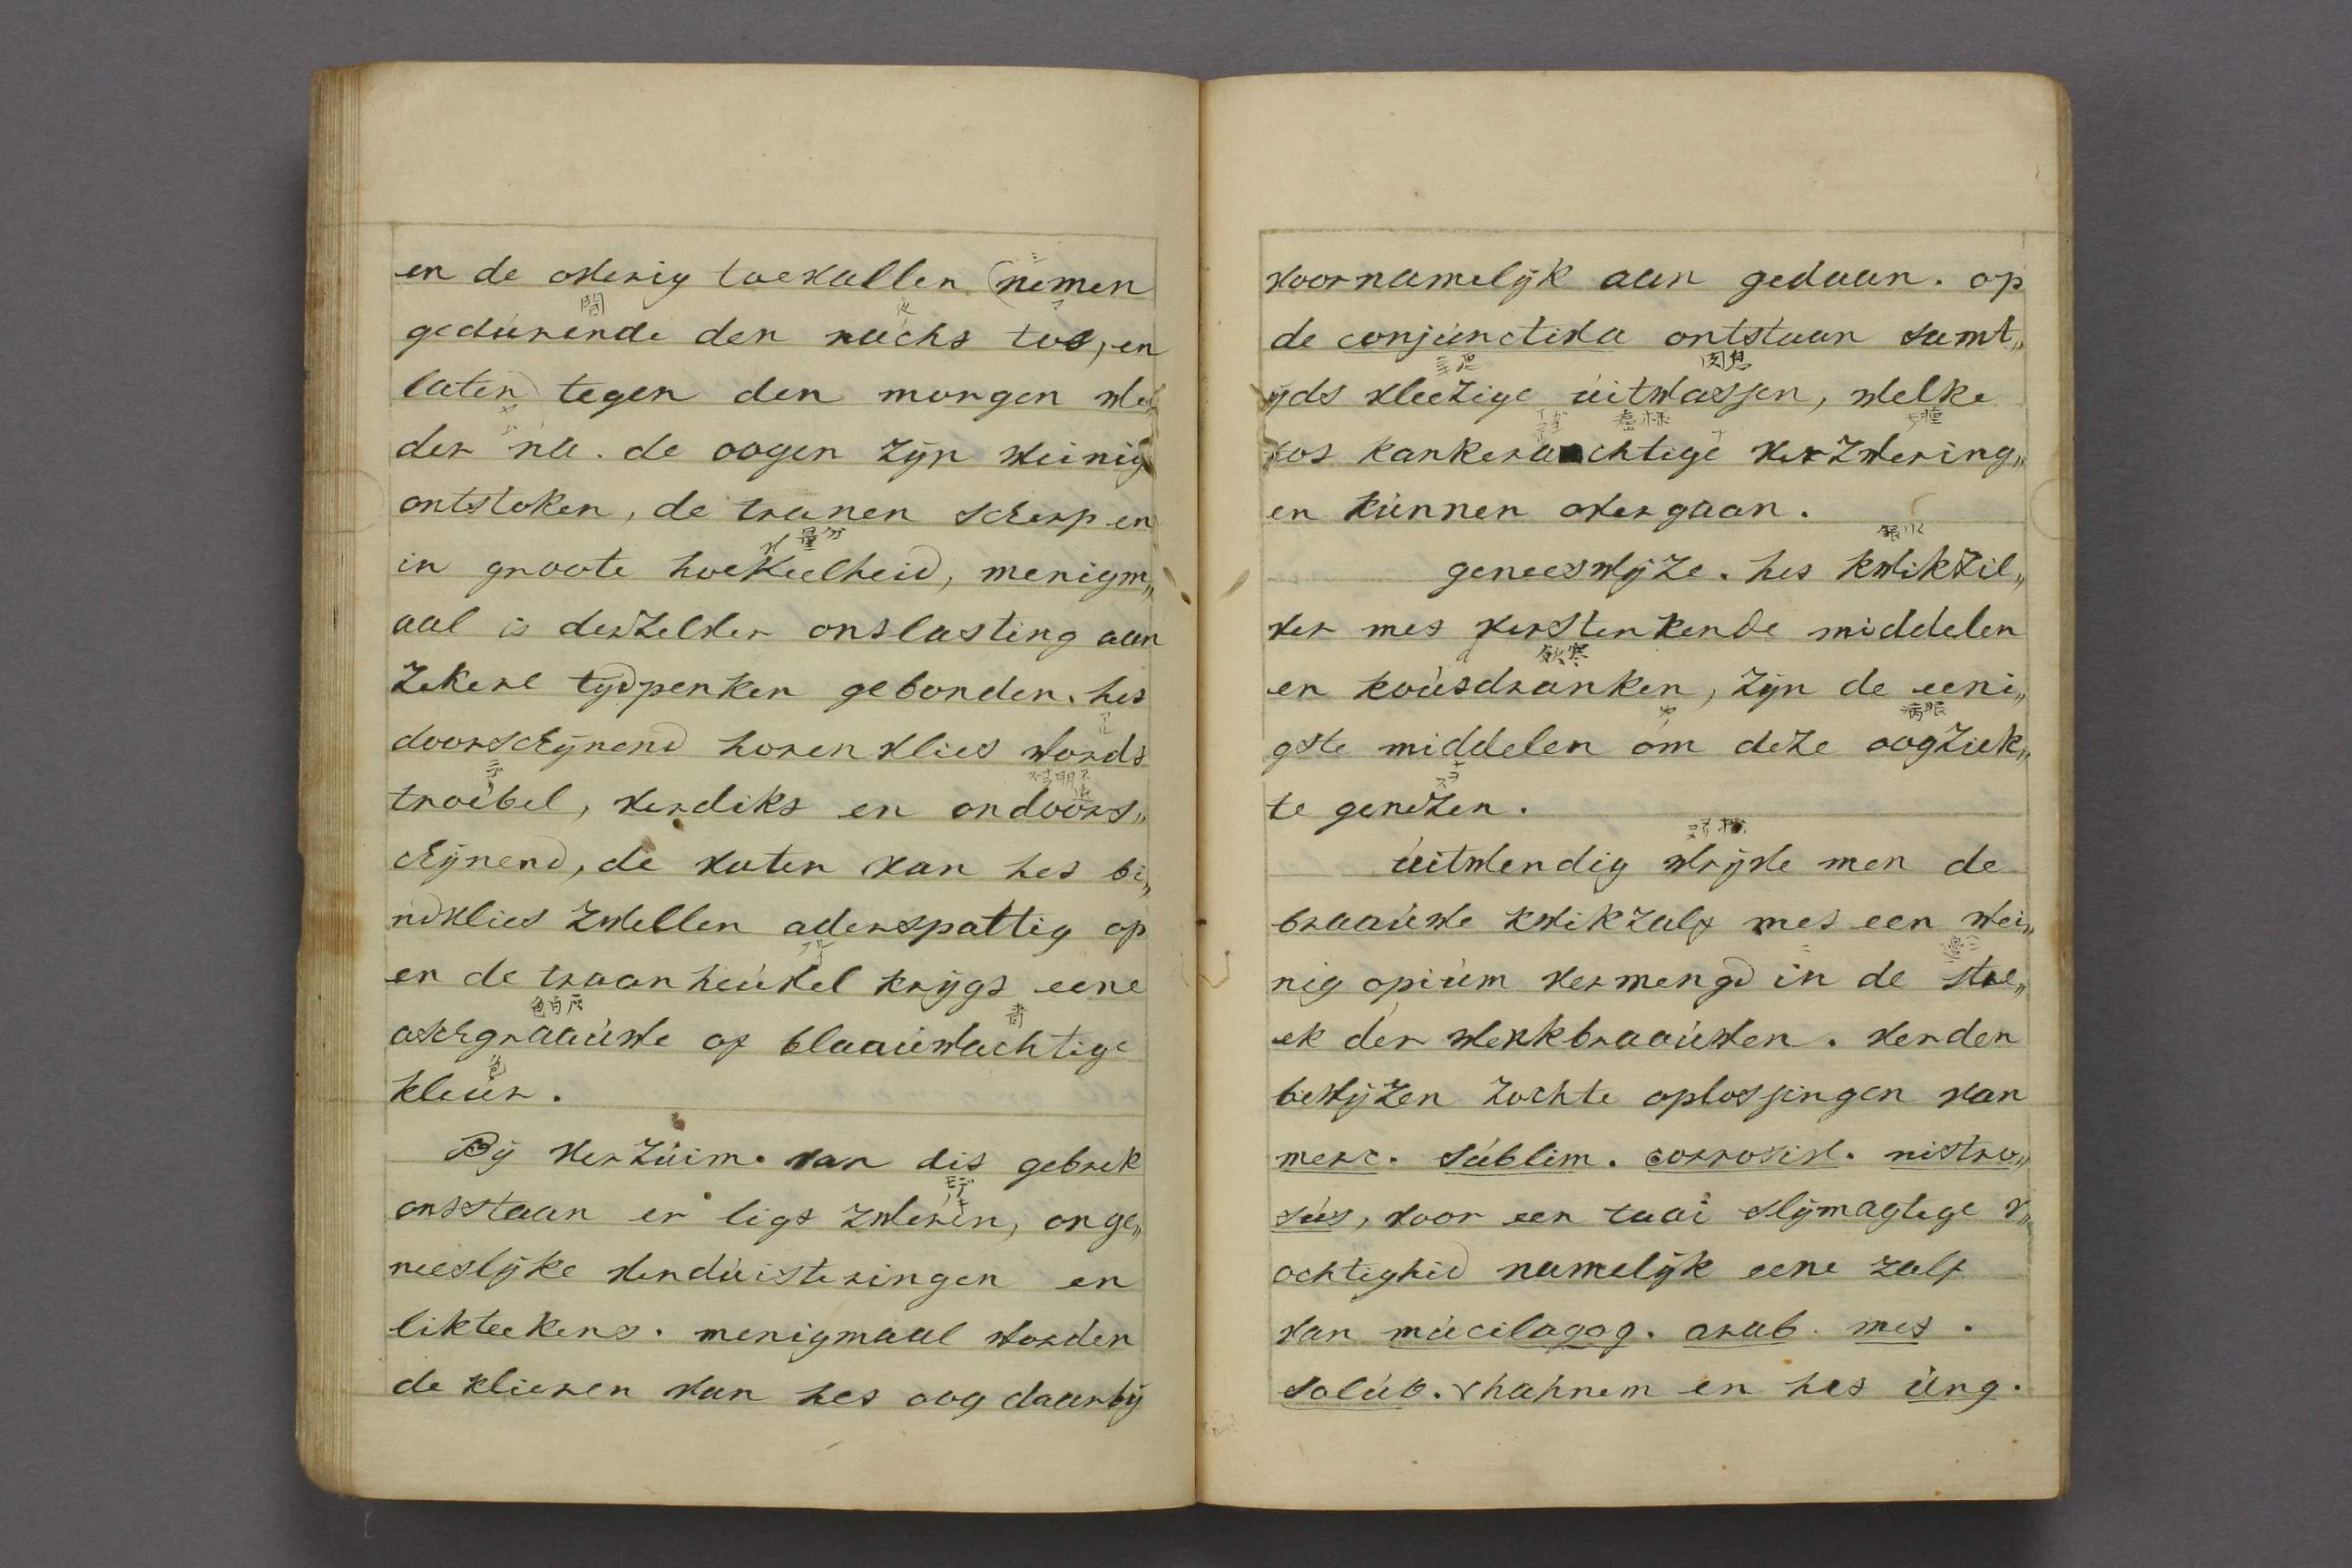 en de overig toevallen (nemen
gedúrende den nachs toe, en
laten) tegen den morgen we„
der na. de oogen zijn weinig
ontstoken, de tranen scherp en
in groote hoeveelheid, menigm„
aal is derzelver onslasting aan
zekere tijdperken gebonden. hes
doorschijnend horenvlies words
troebel, verdiks en ondoors„
chijnend, de vaten van hes bi„
ndvlies zwellen aderspattig op
en de traanheúvel krijgs eene
aschgraaúwe of blaaúwachtige
kleúr.
Bij verzúim van dis gebrek
onsstaan er ligs zweren, onge„
neeslijke verdúisteringen en
likteekens. menigmaal worden
de klieren van hes oog daarbij
voornamelijk aan gedaan. op
de conjúnctiva ontstaan samt„
ijds vleezige úitwassen, welke
tos kankerachtige verzwering„
en kúnnen overgaan.
geneeswijze. hes kwikzil„
ver mes versterkende middelen
en koúsdranken, zijn de eeni„
gste middelen om deze oogziek„
te genezen.
úitwendig wrijve men de
braaúwe kwikzalf mes een wei„
nig opiúm vermengd in de stre„
ek der wenkbraaúwen. verder
bewijzen zachte oplossingen van
merc. súblim. corrosiv. nistro„
sús, voor een taai slijmagtege v„
ochtighid namelijk eene zalf
van múcilagog. arab. mes.
solúb. hahnem en hes úng.